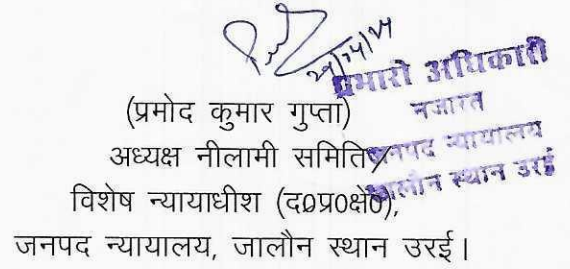 प्रभारी अधिकारी
नजारत
जनपद न्यायालय
जालौन स्थान उरई
(प्रमोद कुमार गुप्ता)
अध्यक्ष नीलामी समिति/
विशेष न्यायाधीश (द0प्र0क्षे0),
जनपद न्यायालय, जालौन स्थान उरई।